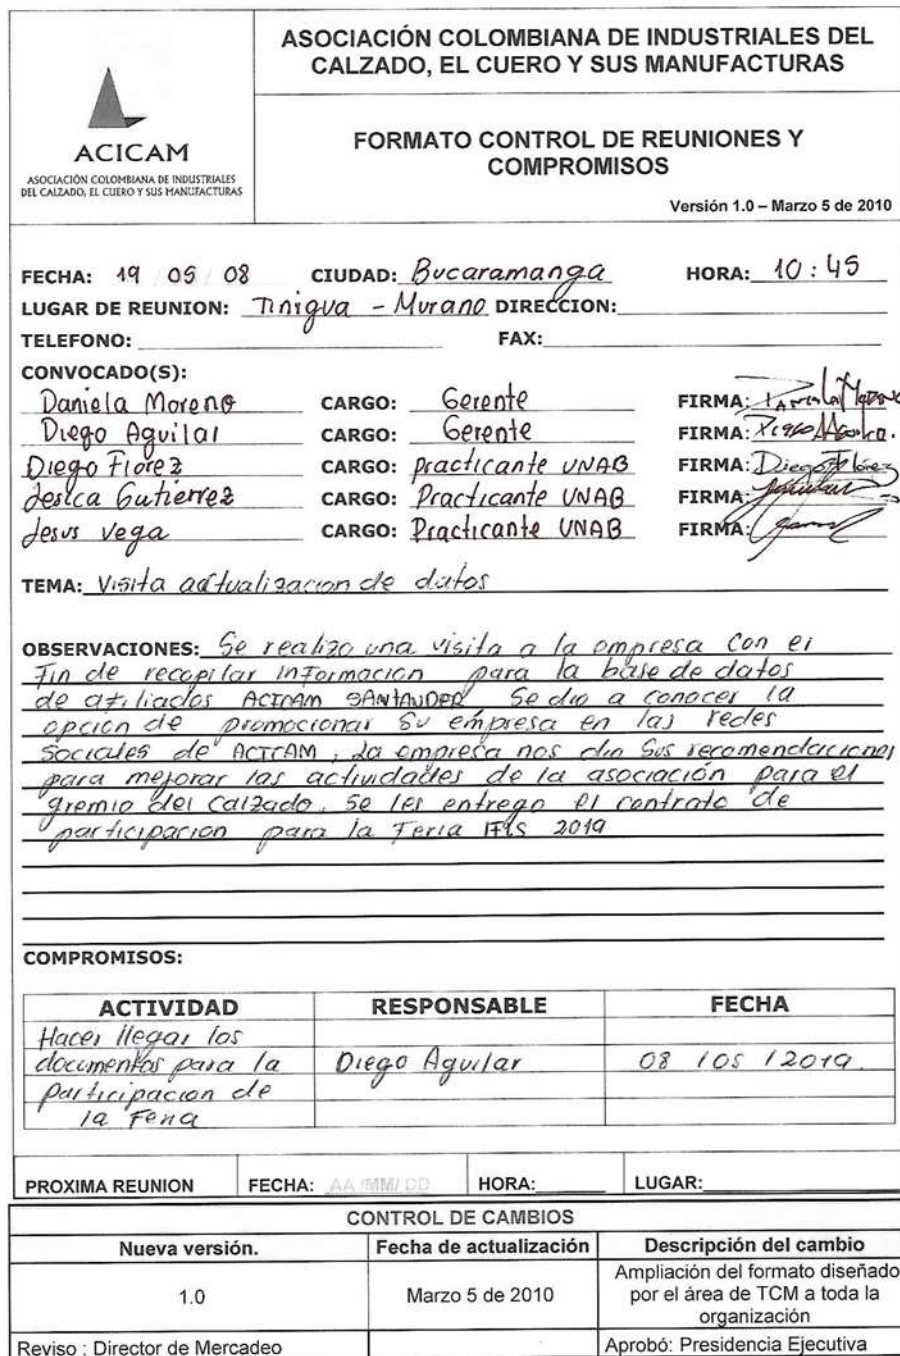 ACICAM
ASOCIACIÓN COLOMBIANA DE INDUSTRIALES
DEL CALZADO, EL CUERO Y SUS MANUFACTURAS
ASOCIACIÓN COLOMBIANA DE INDUSTRIALES DEL
CALZADO, EL CUERO Y SUS MANUFACTURAS
FORMATO CONTROL DE REUNIONES Y
COMPROMISOS
Versión 1.0 – Marzo 5 de 2010
FECHA: 19 05 08 CIUDAD: Bucaramanga HORA: 10:45
LUGAR DE REUNION: Tinigua - Murano DIRECCION:
TELEFONO: FAX:
CONVOCADO(S):
Daniela Moreno CARGO: Gerente FIRMA:
Diego Aguilar CARGO: Gerente FIRMA:
Diego Florez CARGO: practicante UNAB FIRMA: Diego Flórez
Jesica Gutierrez CARGO: Practicante UNAB FIRMA:
Jesus Vega CARGO: Practicante UNAB FIRMA:
TEMA: Visita actualizacion de datos
OBSERVACIONES: Se realizo una visita a la empresa con el
fin de recopilar informacion para la base de datos
de afiliados ACICAM SANTANDER Se dio a conocer la
opcion de promocionar su empresa en las redes
sociales de ACICAM, La empresa nos dio sus recomendaciones
para mejorar las actividades de la asociación para el
gremio del calzado. Se les entrego el contrato de
participacion para la Feria IFLS 2019
COMPROMISOS:
ACTIVIDAD RESPONSABLE FECHA
Hacer llegar los
documentos para la Diego Aguilar 08 / 05 / 2019.
Participacion de
la Feria
PROXIMA REUNION FECHA: AA /MM/ DD HORA: LUGAR:
CONTROL DE CAMBIOS
Nueva versión. Fecha de actualización Descripción del cambio
1.0 Marzo 5 de 2010 Ampliación del formato diseñado
por el área de TCM a toda la
organización
Reviso : Director de Mercadeo Aprobó: Presidencia Ejecutiva